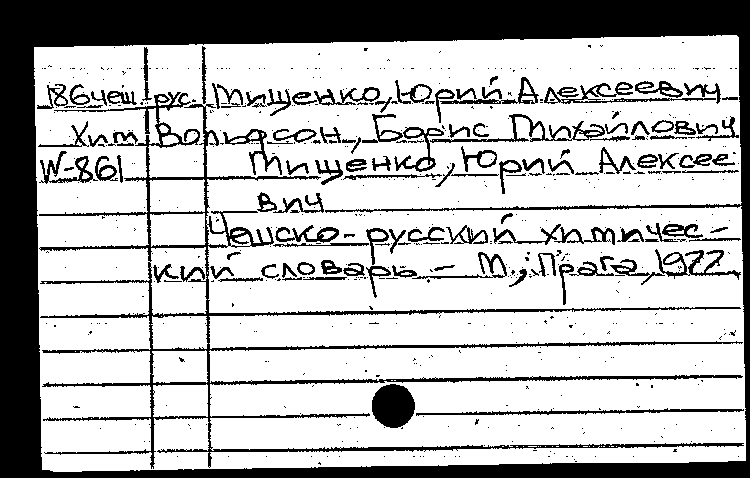 186чеш.-рус. Мищенко, Юрий Алексеевич
Хим Вольфсон, Борис Михайлович
W-861 Мищенко, Юрий Алексее
вич
Чешско-русский химичес-
кий словарь - М.; Прага, 1977.